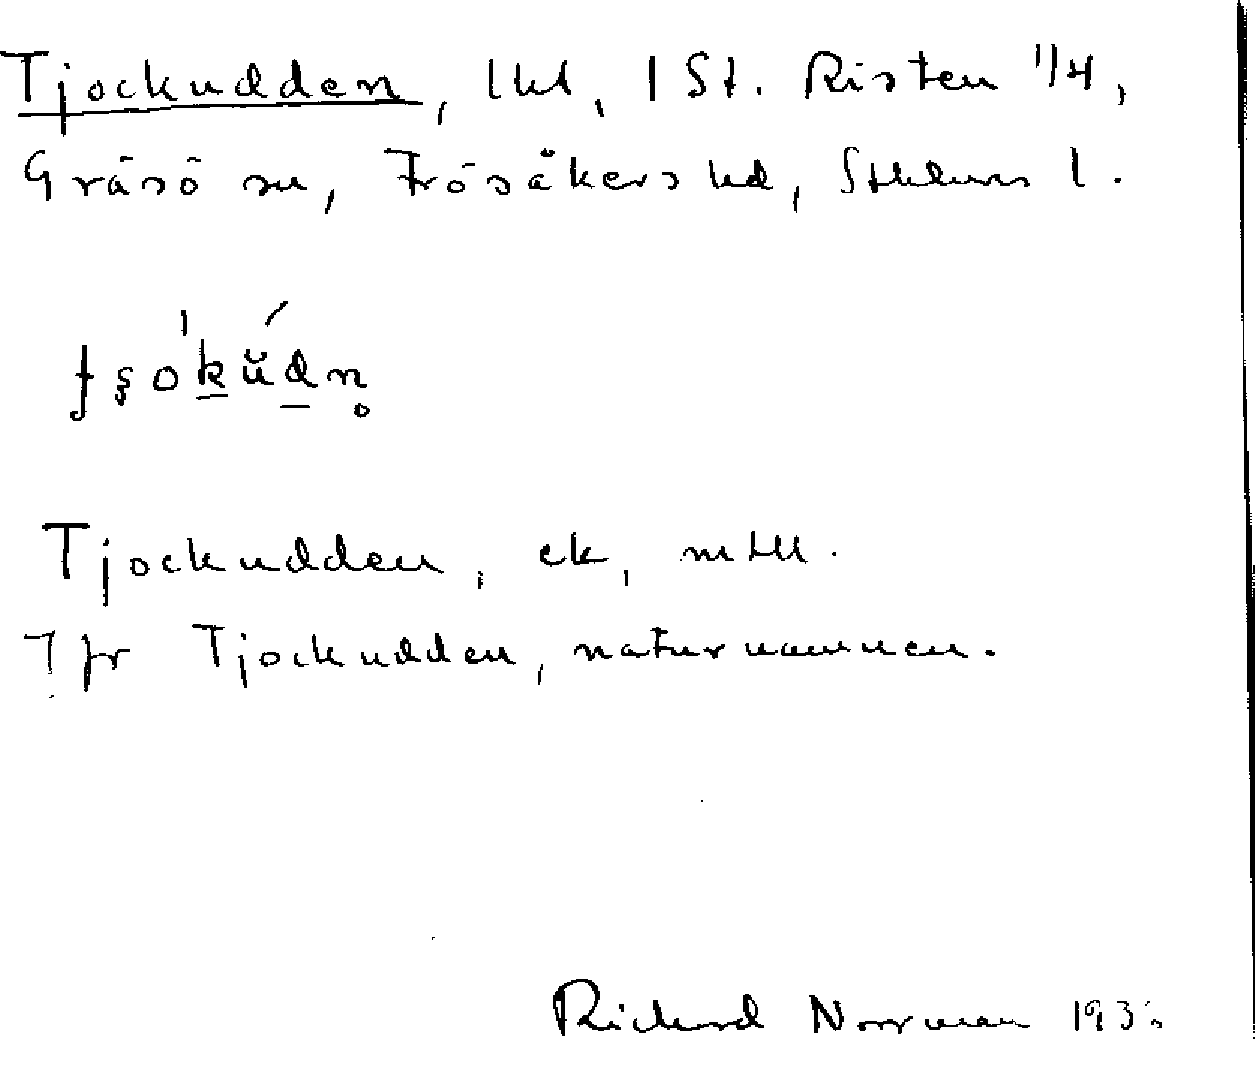 Tjockudden, lht, 1 St. Risten 1/4,
Gräsö sn, Frösåkers hd, Sthlms l.
Tjockudden, ek,
Jfr Tjockudden, naturnamnen.
Richard Norrman